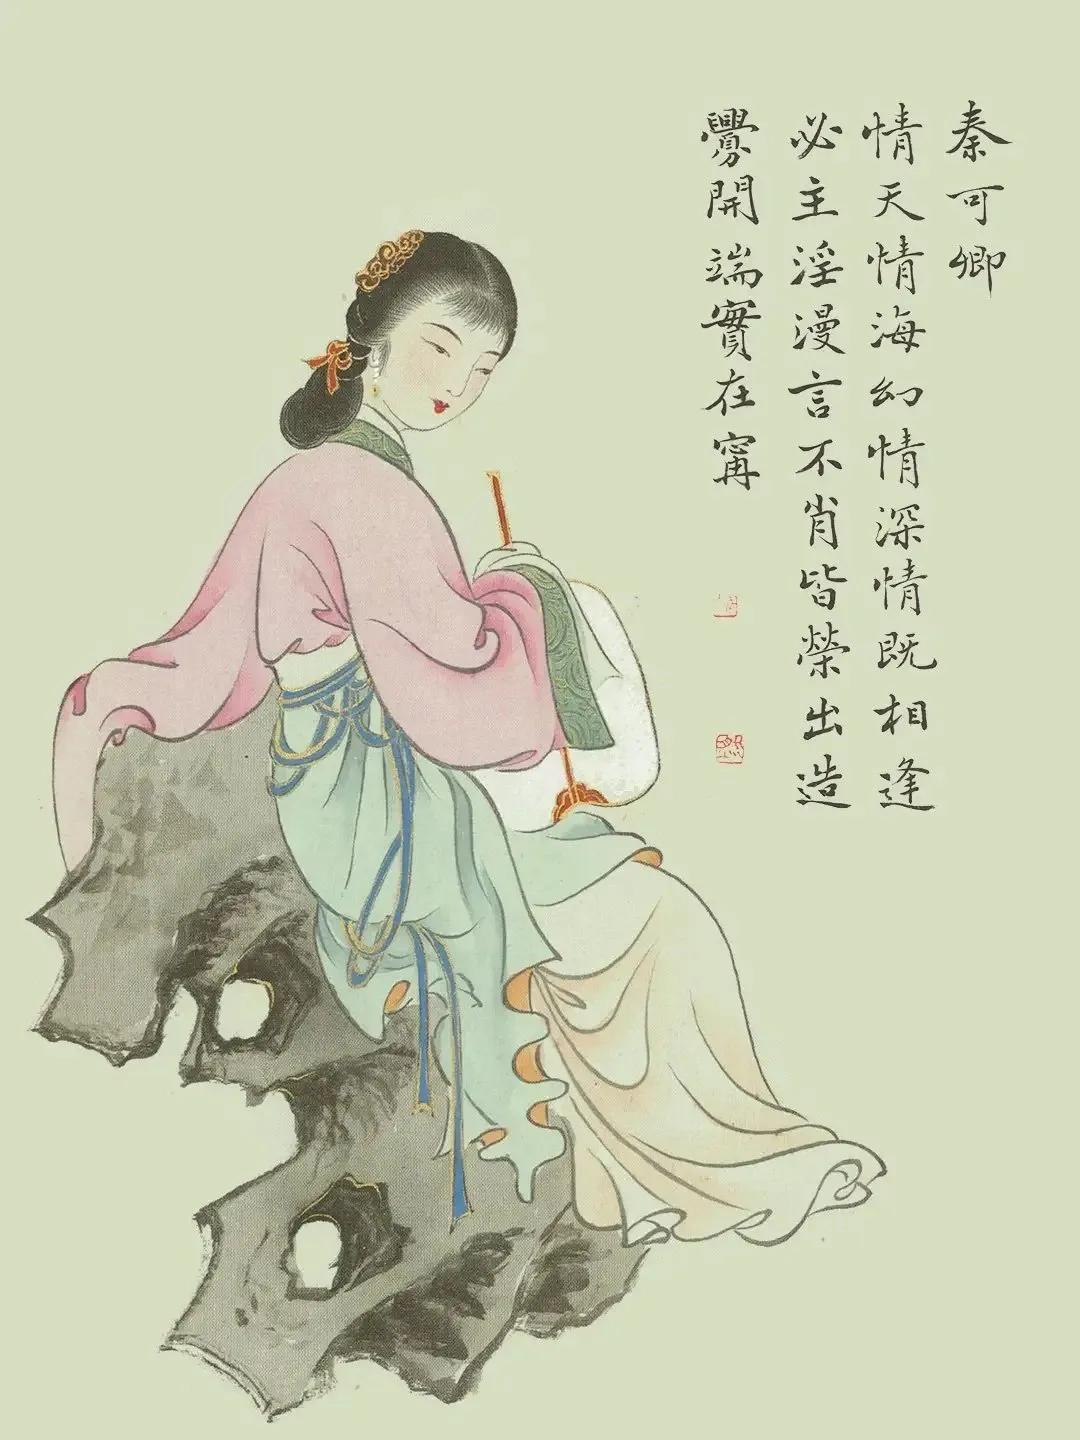 秦可卿
情天情海幻情深情既相逢
必主淫漫言不肖皆榮出造
釁開端實在甯